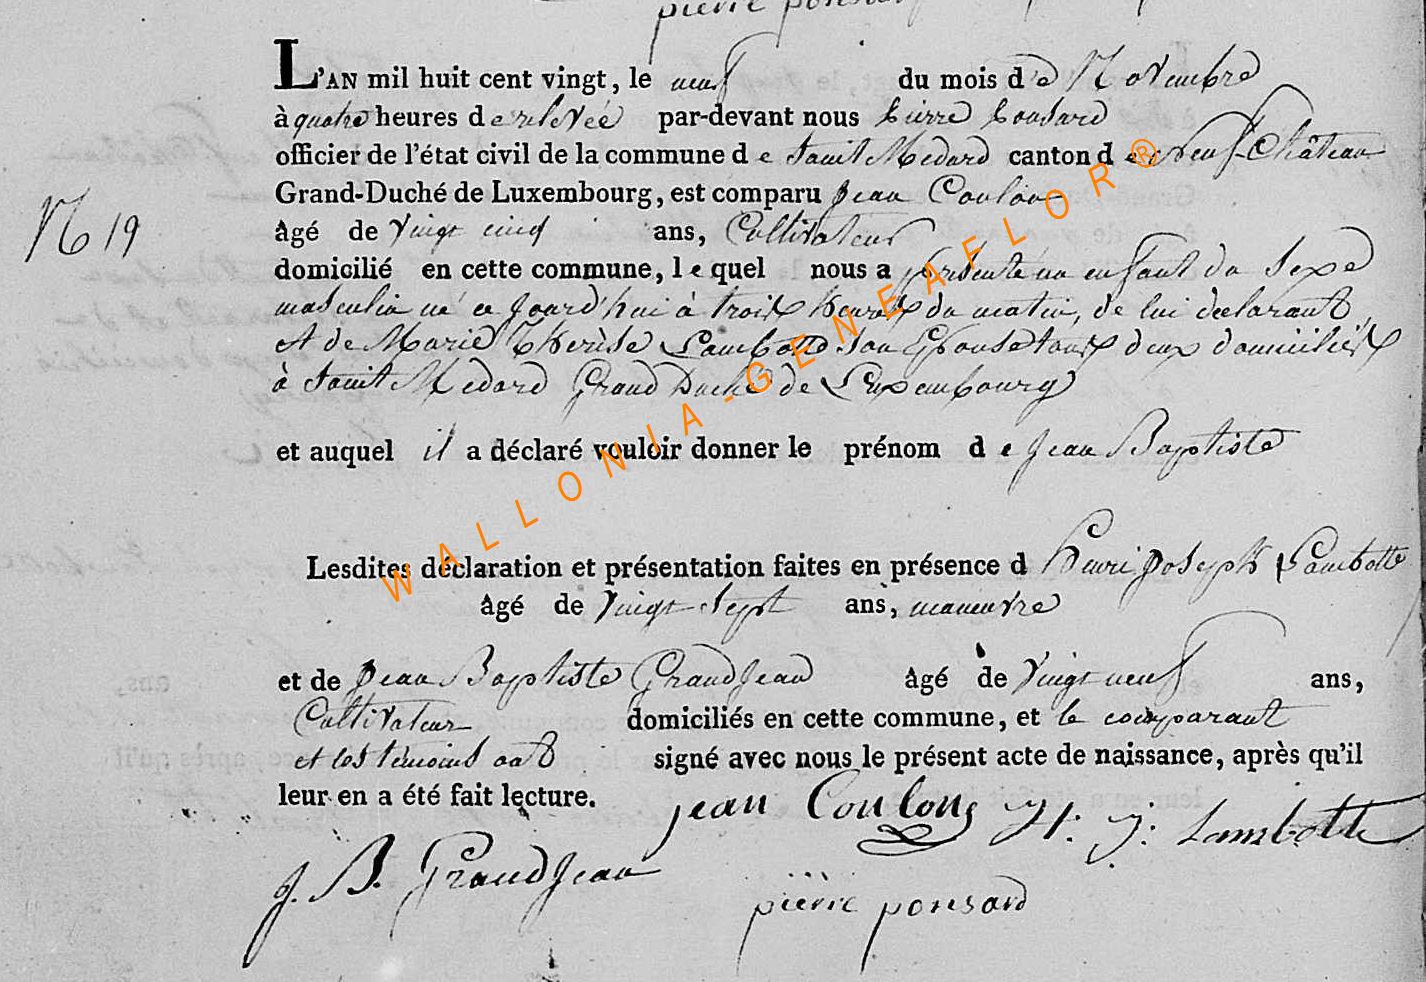 pierre ponsard
L'AN mil huit cent vingt, le neuf du mois de Novembre
à quatre heures de relevée par-devant nous Pierre Ponsard
officier de l'état civil de la commune de Saint Medard canton de Neuf-Château
Grand-Duché de Luxembourg, est comparu Jean Coulon
N 19
âgé de vingt cinq ans, Cultivateur
domicilié en cette commune, lequel nous a présenté un enfant du Sexe
masculin né ce jourd'hui à trois heures du matin, de lui declarant
et de Marie Thérèse Lambotte son Epouse tous deux domiciliés
à Saint Medard Grand Duché de Luxembourg
et auquel il a déclaré vouloir donner le prénom de Jean Baptiste
Lesdites déclaration et présentation faites en présence d Henri Joseph Lambotte
âgé de vingt sept ans, manœuvre
et de Jean Baptiste Grandjean âgé de vingt neuf ans,
Cultivateur domiciliés en cette commune, et le comparant
et les témoins ont signé avec nous le présent acte de naissance, après qu'il
leur en a été fait lecture.
jean Coulon H: J: Lambotte
J. B. Grandjean
pierre ponsard
WALLONIA-GENEAFLOR®